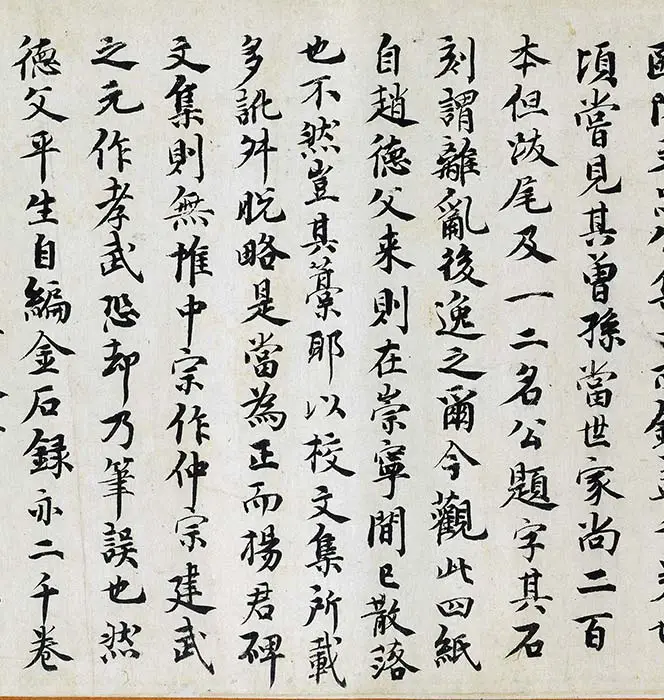 頃嘗見其曾孫當世家尚二百
本但跋尾及一二名公題字其石
刻謂離亂後逸之爾今觀此四紙
自趙德父来則在崇寧間已散落
也不然豈其藁耶以校文集所載
多訛舛脫略是當為正而楊君碑
文集則無惟中宗作仲宗建武
之元作孝武恐却乃筆誤也然
德父平生自編金石録亦二千卷